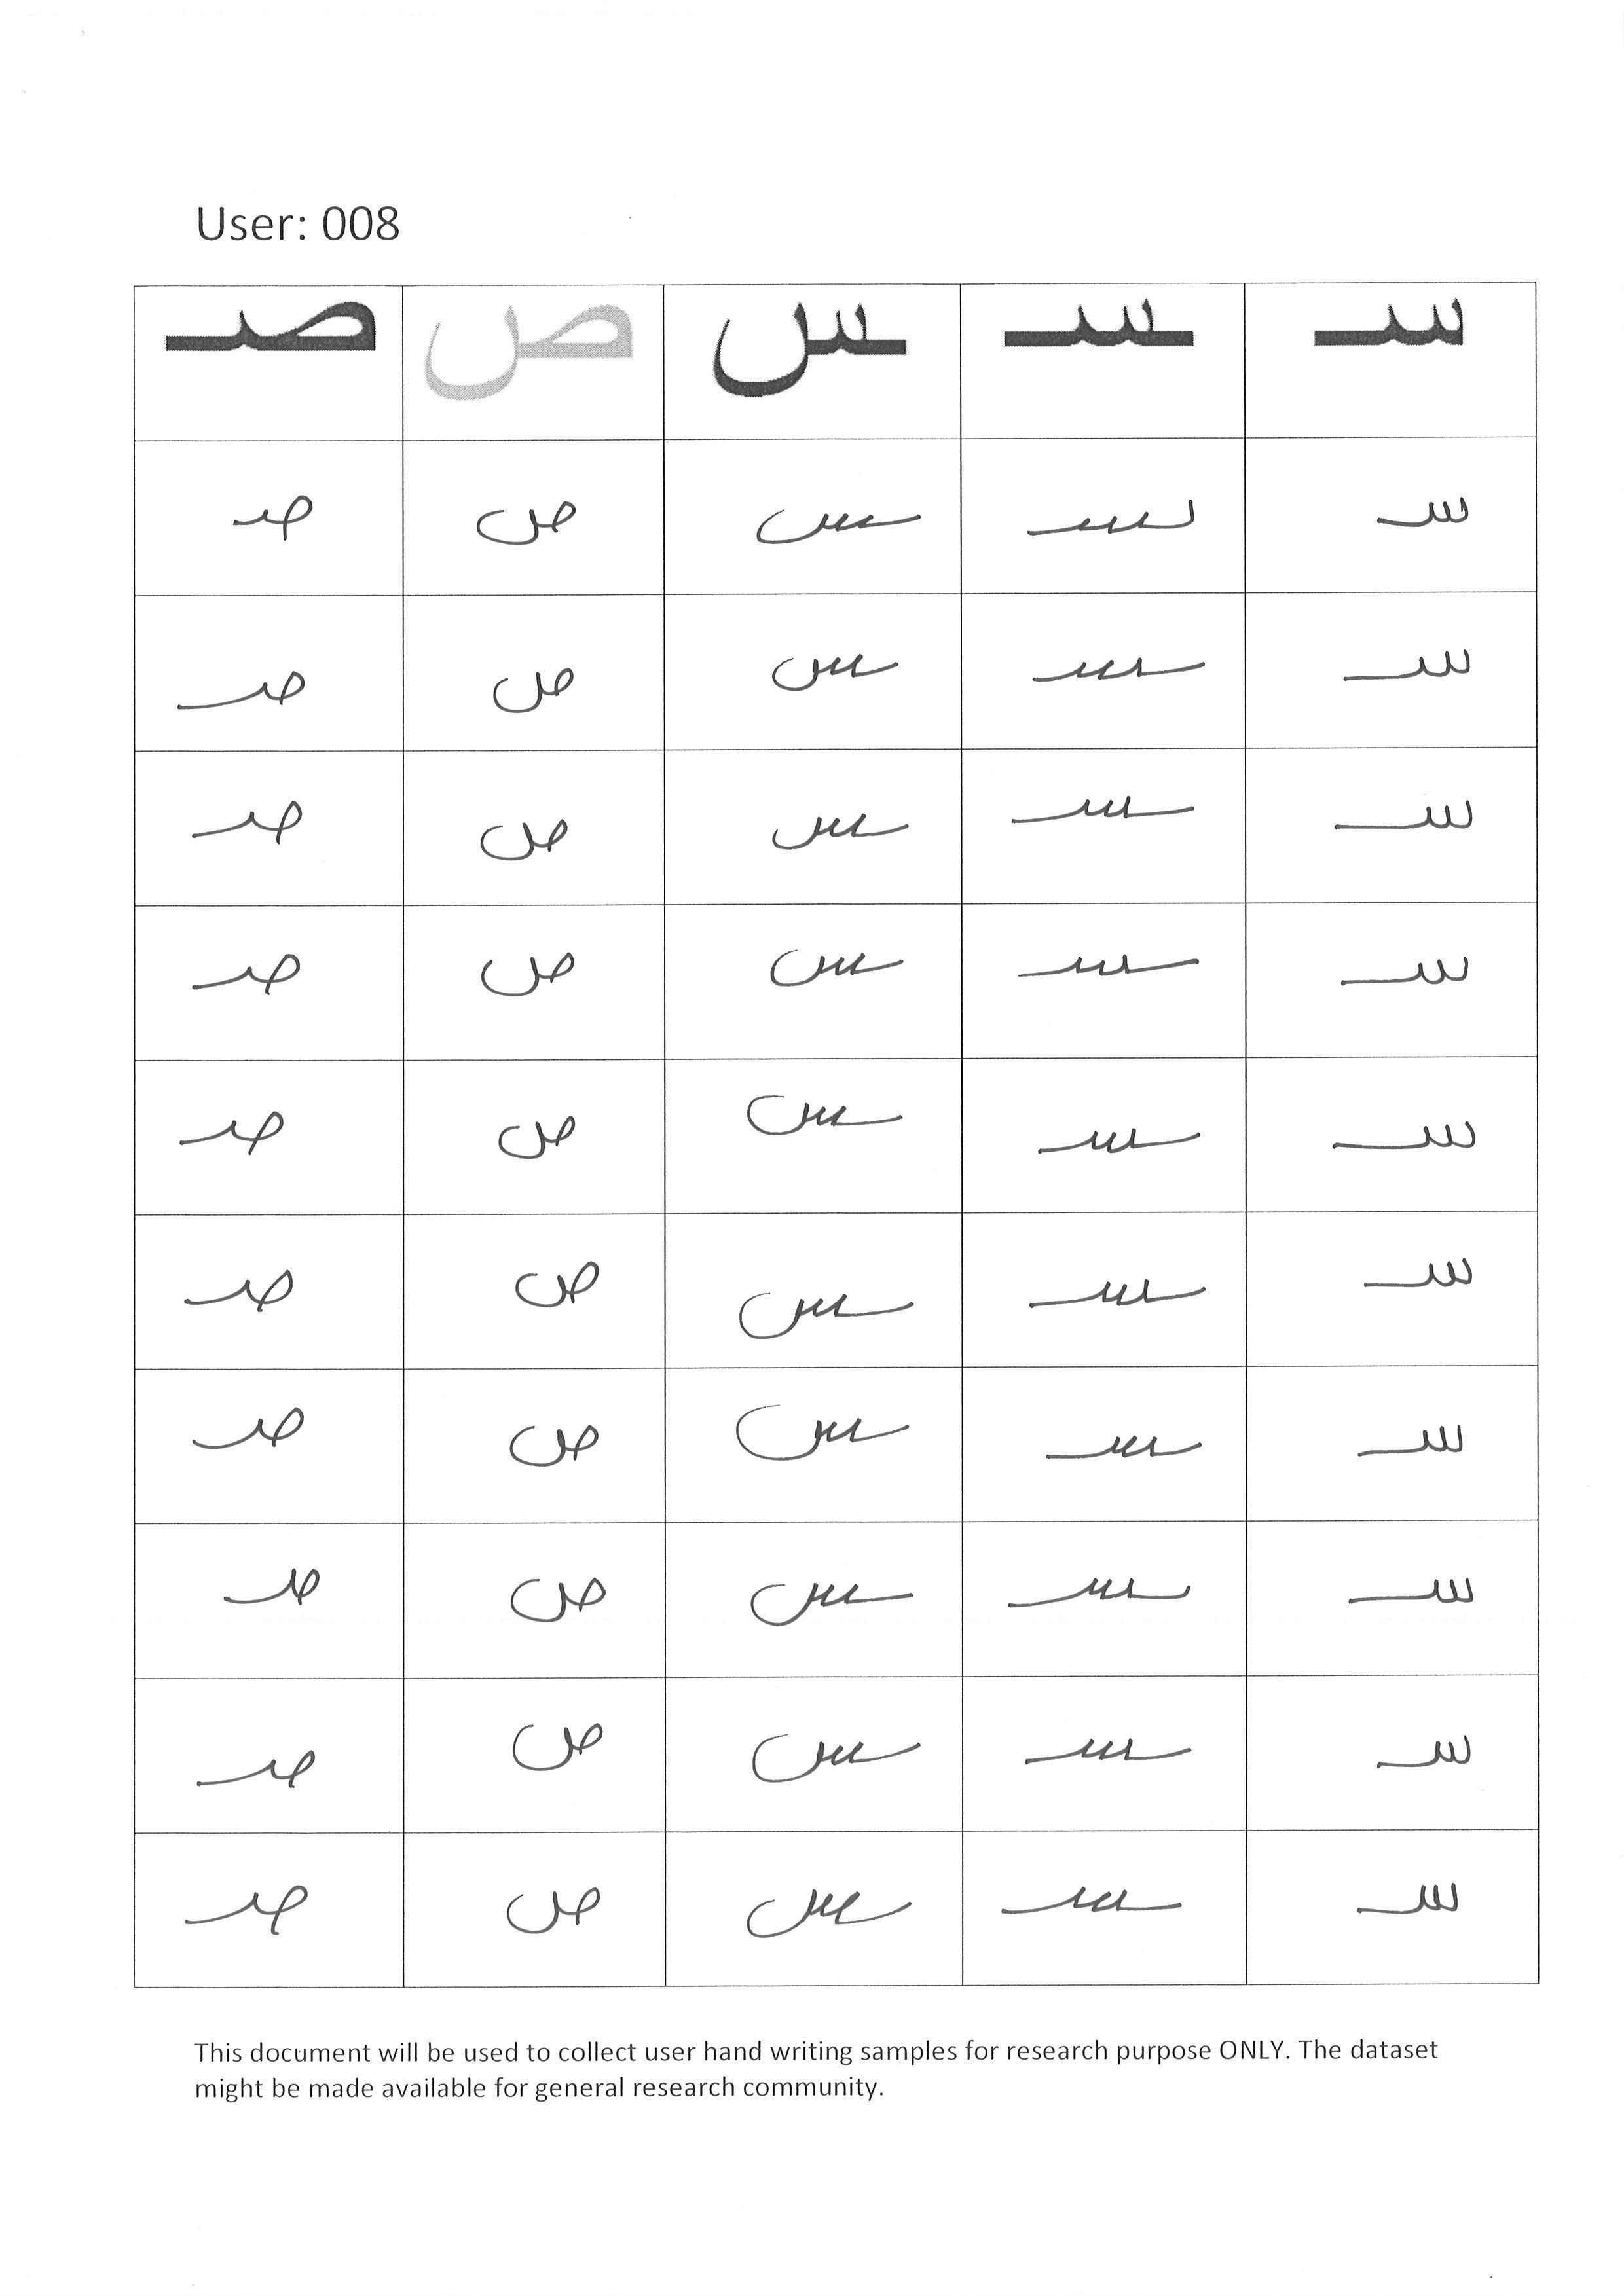 User: 008
سـ ـسـ ـس ص صـ
سـ ـسـ ـس ص صـ
سـ ـسـ ـس ص صـ
سـ ـسـ ـس ص صـ
سـ ـسـ ـس ص صـ
سـ ـسـ ـس ص صـ
سـ ـسـ ـس ص صـ
سـ ـسـ ـس ص صـ
سـ ـسـ ـس ص صـ
سـ ـسـ ـس ص صـ
سـ ـسـ ـس ص صـ
This document will be used to collect user hand writing samples for research purpose ONLY. The dataset
might be made available for general research community.